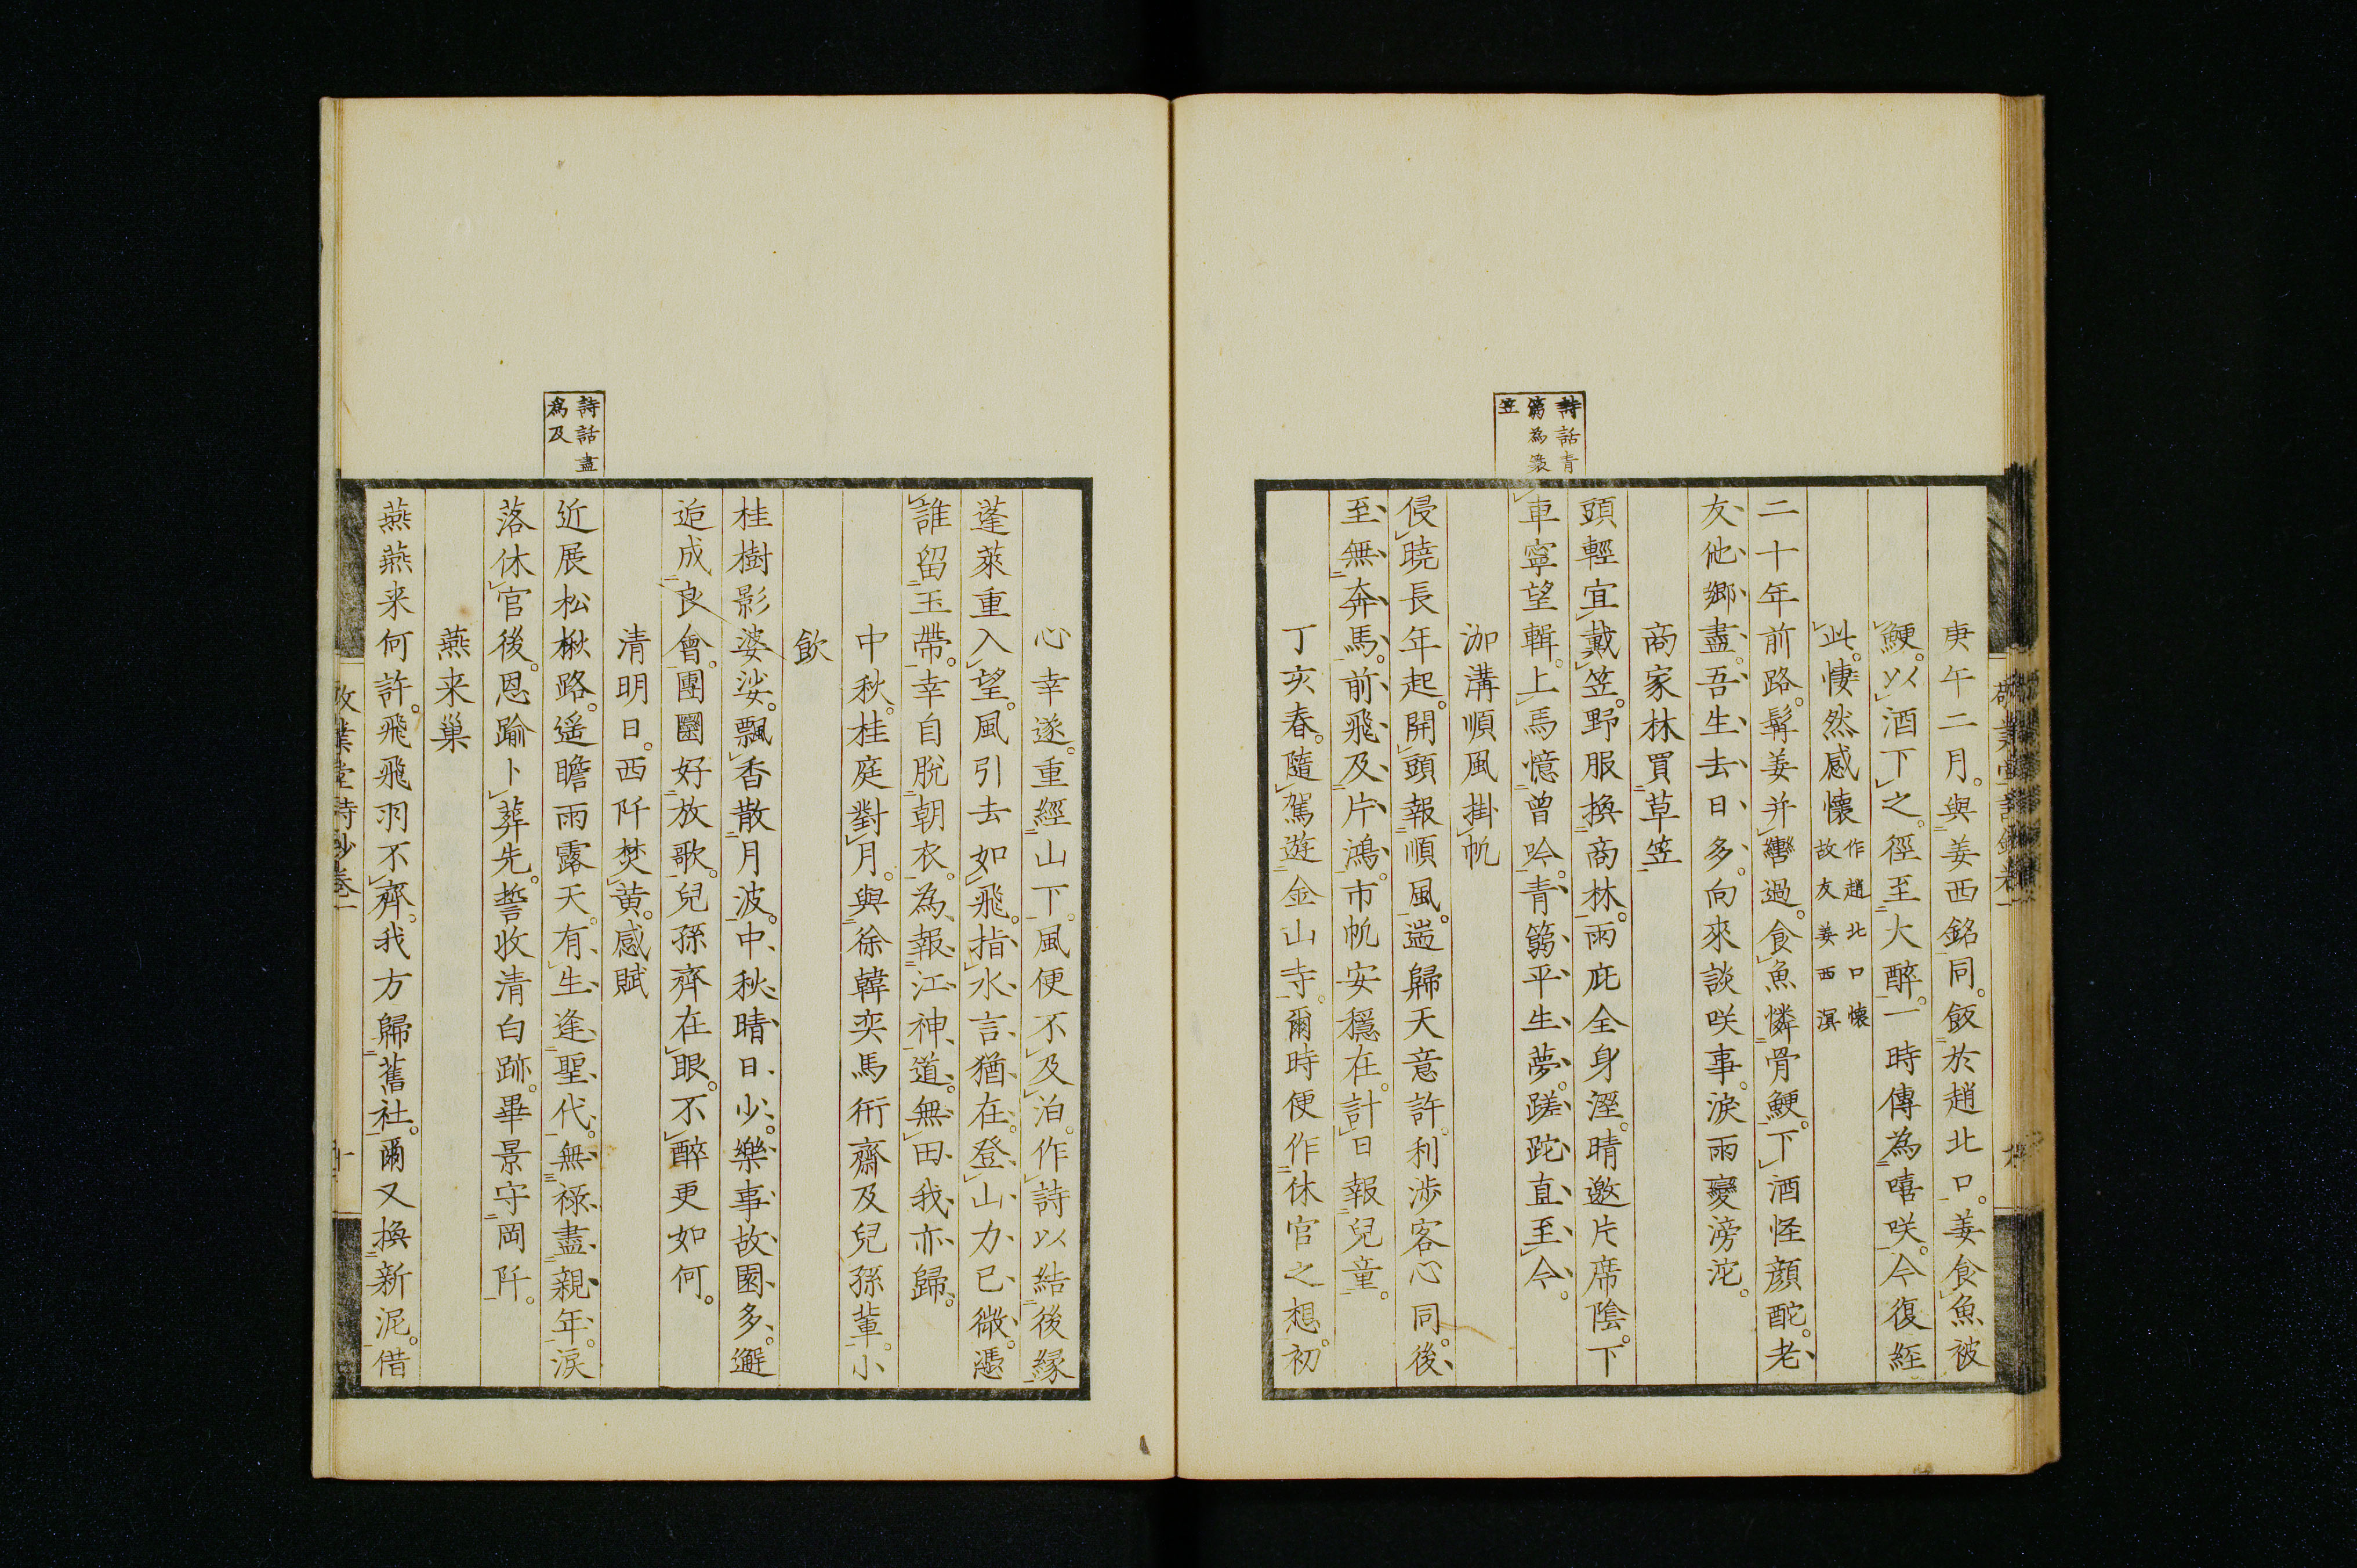 詩話青
篛為簑
笠
庚午二月。與姜西銘同。飯於趙北口。姜食魚被
鯁。以酒下之。徑至大醉。一時傳為嘻咲。今復經
此。悽然感懷作趙北口懷
故友姜西溟
二十年前路。髯姜并轡過。食魚憐骨鯁。下酒怪顔酡。老
友他鄉盡。吾生去日多。向來談咲事。淚雨變滂沱。
商家林買草笠
頭輕宜戴笠。野服換商林。雨庇全身溼。晴邀片席陰。下
車寧望輯。上馬憶曾吟。青篛平生夢。蹉跎直至今。
泇溝順風掛帆
侵曉長年起。開頭報順風。遄歸天意許。利涉客心同。後
至無奔馬。前飛及片鴻。布帆安穩在。計日報兒童。
丁亥春。隨駕遊金山寺。爾時便作休官之想。初
心幸遂。重經山下。風便不及泊。作詩以結後縁
蓬萊重入望。風引去如飛。指水言猶在。登山力已微。憑
誰留玉帶。幸自脫朝衣。為報江神道。無田我亦歸。
中秋。桂庭對月。與徐韓奕馬衎齋及兒孫輩。小
飲
桂樹影婆娑。飄香散月波。中秋晴日少。樂事故園多。邂
逅成良會。團圞好放歌。兒孫齊在眼。不醉更如何。
清明日。西阡焚黄。感賦
詩話盡
為及
近展松楸路。遥瞻雨露天。有生逢聖代。無祿盡親年。淚
落休官後。恩踰卜葬先。誓收清白跡。畢景守岡阡。
燕来巢
燕燕来何許。飛飛羽不齊。我方歸舊社。爾又換新泥。借
敬業堂詩鈔卷一
十